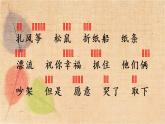 扎风筝 松鼠 折纸船 纸条
漂流 祝你幸福 抓住 他们俩
吵架 但是 愿意 哭了 取下